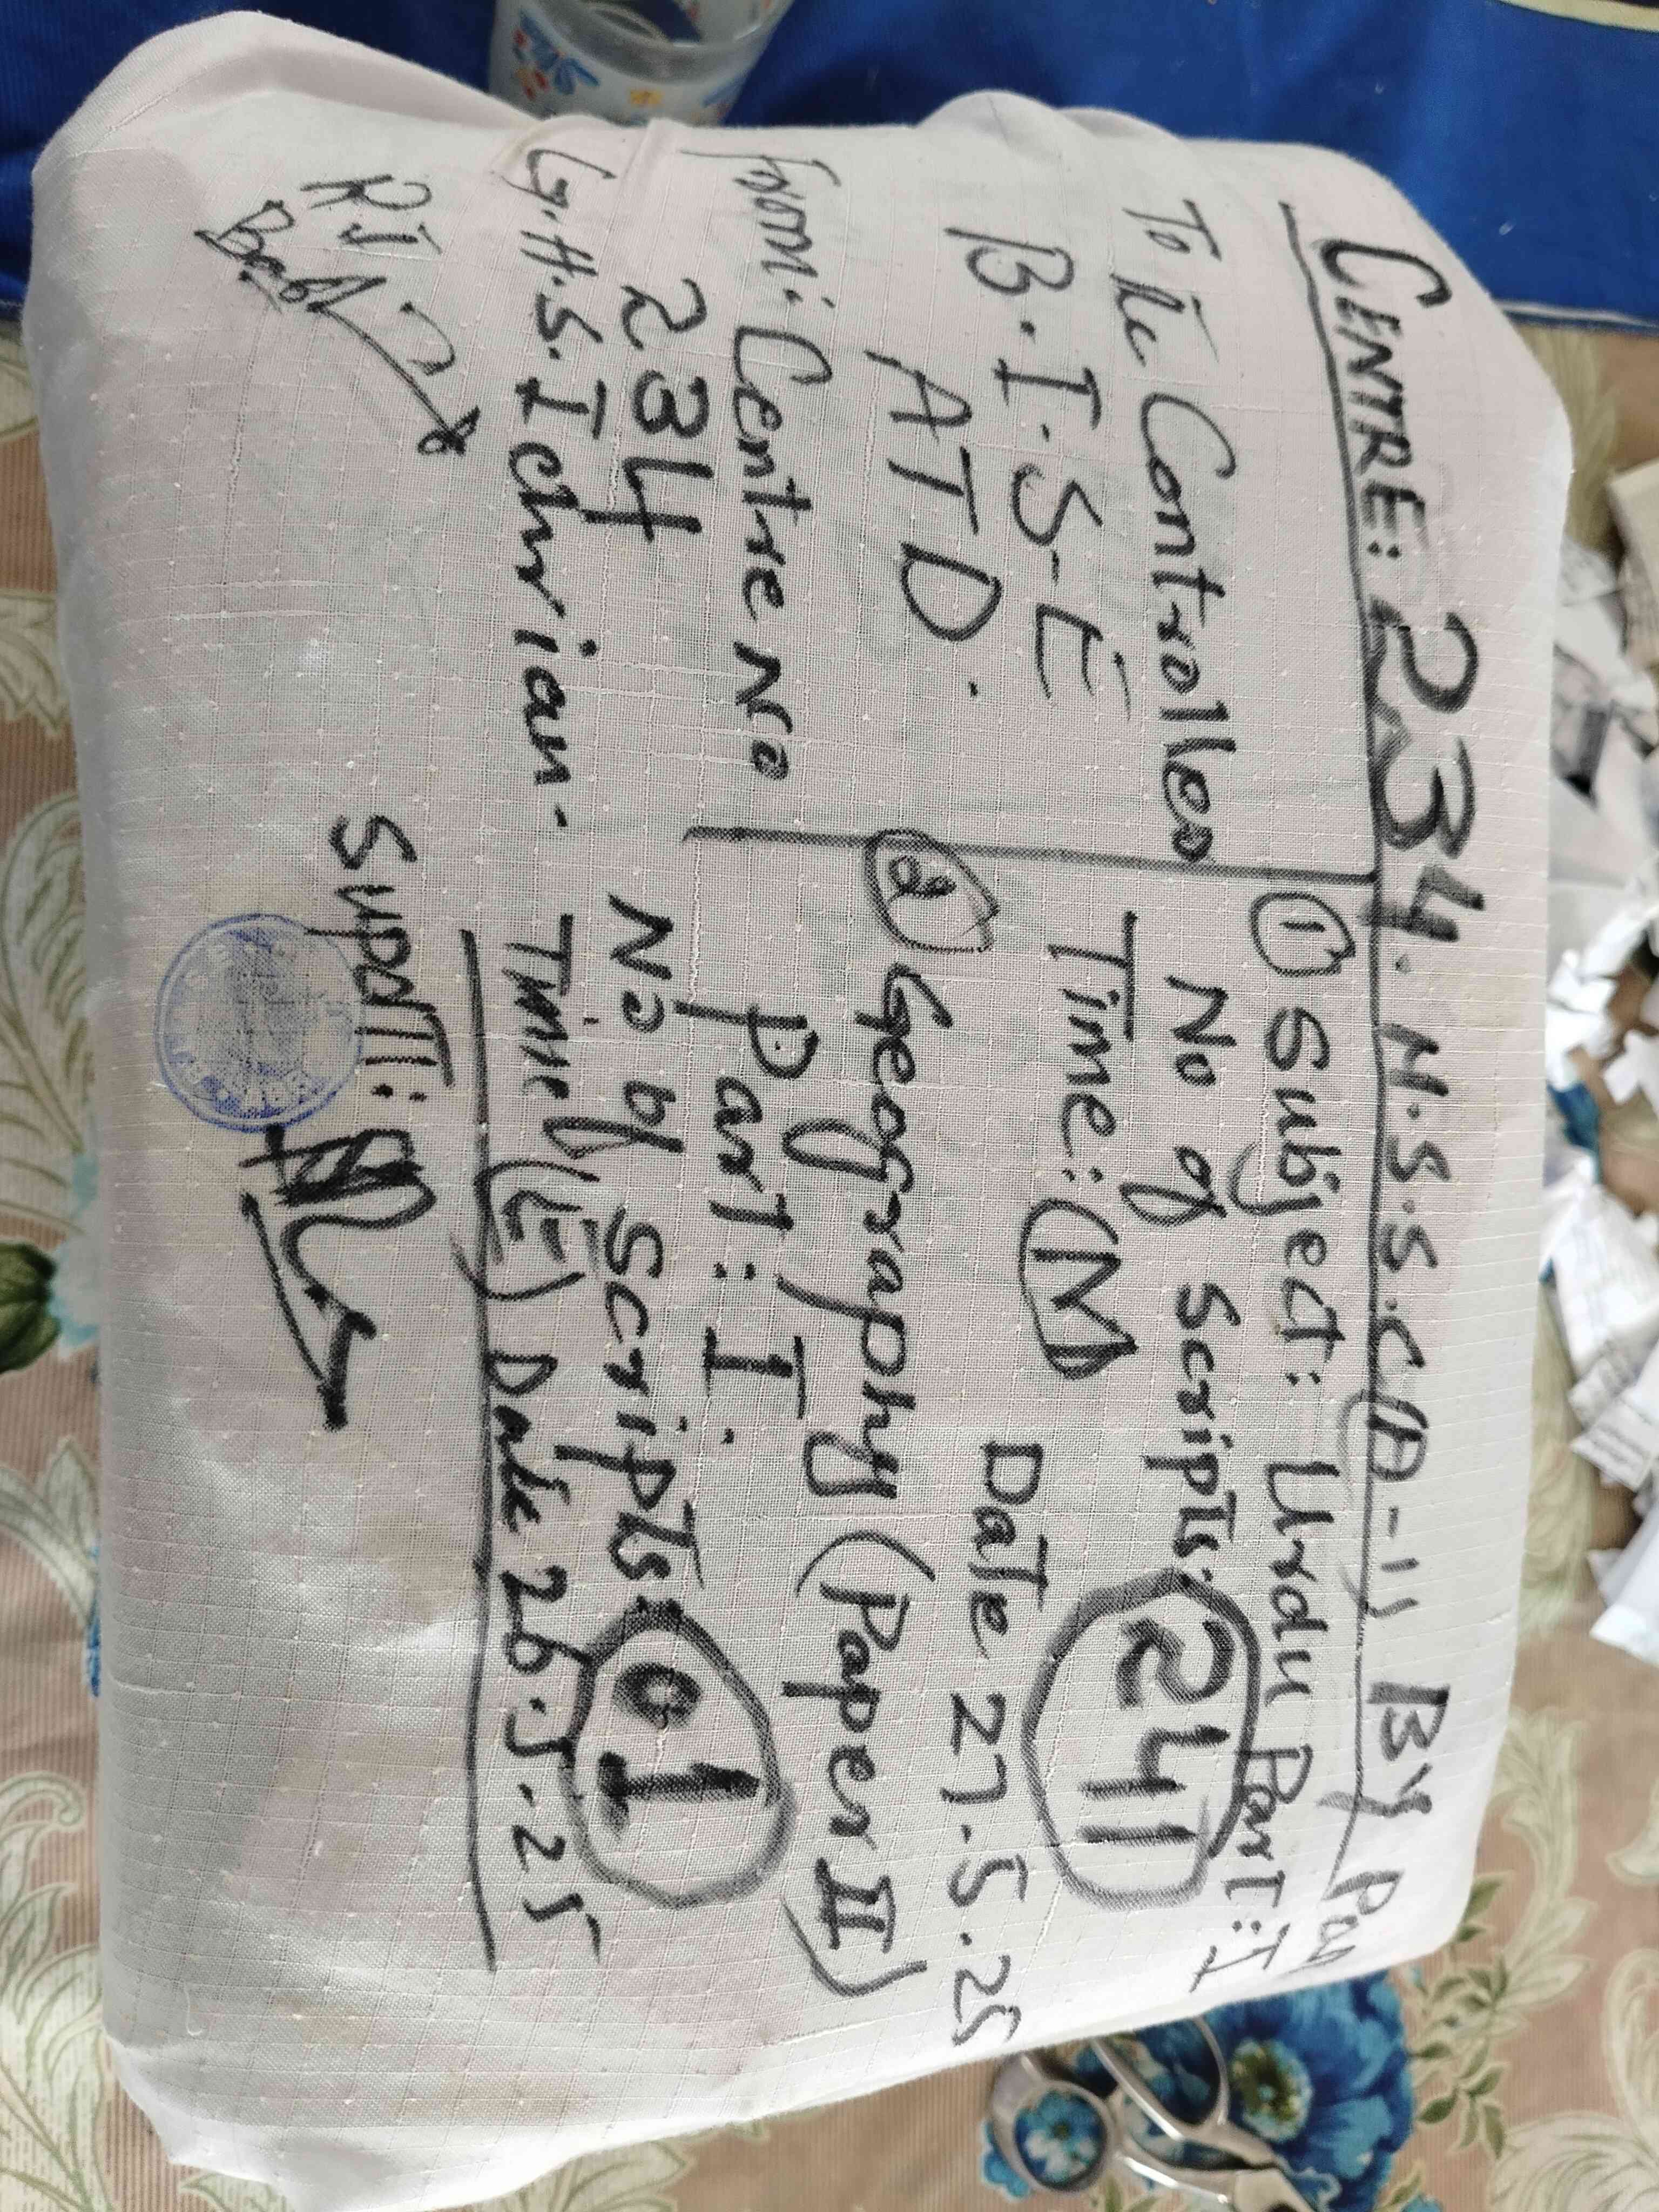 CENTRE: 234. H.S.S.C (A-1) By
To the Controller
B.I.S.E
ATD.
From: Centre No
234
G.H.S.I chhrian.
① Subject: Urdu Part: I
No of Scripts: 241
Time: (M)
Date 27.5.25
② Geography (Paper II)
Part: I.
No of Scripts: 01
Time (E) Date 26.5.25
RI
Supdtt: